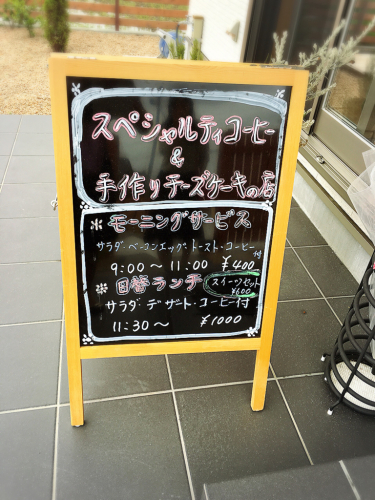 スペシャルティコーヒー
&
手作りチーズケーキの店
※ モーニングサービス
サラダ・ベーコンエッグ・トースト・コーヒー付
9:00～11:00 ¥400
※ 日替ランチ
スイーツセット
¥600
サラダ・デザート・コーヒー付
11:30～ ¥1000